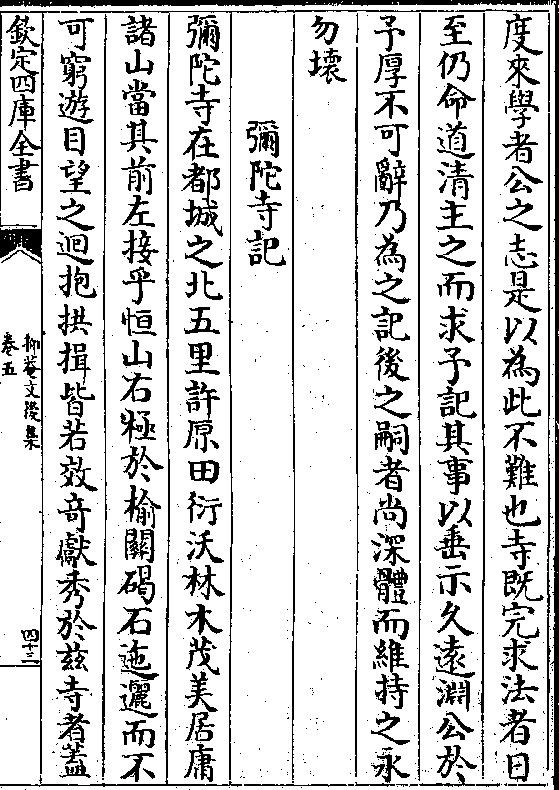 度來學者公之志是以為此不難也寺既完求法者日
至仍命道清主之而求予記其事以垂示久遠淵公於
予厚不可辭乃為之記後之嗣者尚深體而維持之永
勿壞
彌陀寺記
彌陀寺在都城之北五里許原田衍沃林木茂美居庸
諸山當其前左接乎恒山右極於榆關碣石迤邐而不
可窮遊目望之迴抱拱揖皆若效奇獻秀於茲寺者蓋
欽定四庫全書
抑菴文後集
卷五
四十三